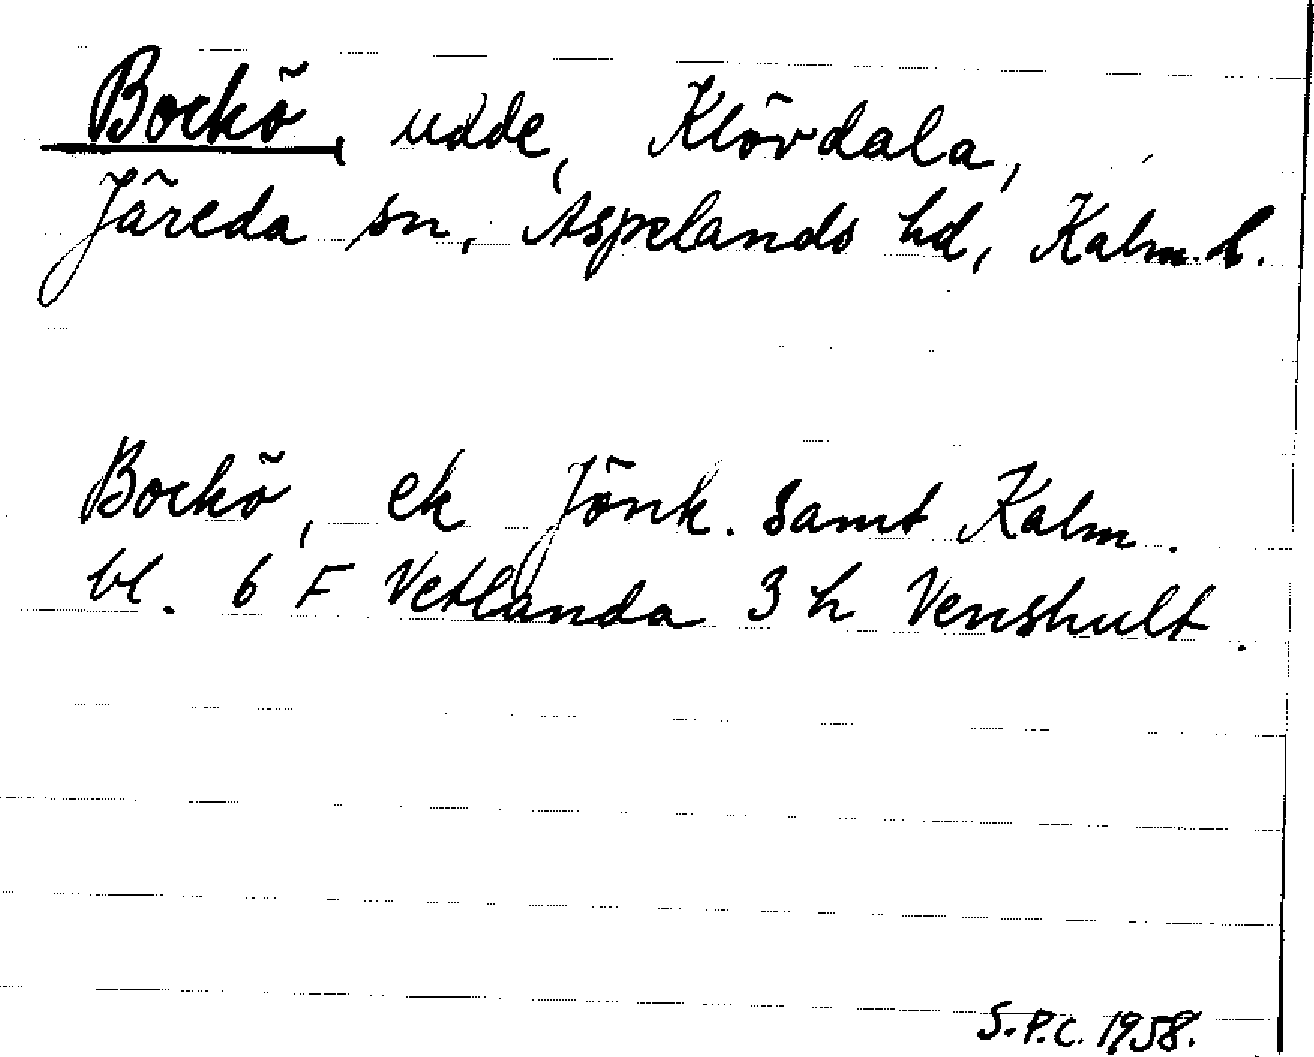 Bockö, udde, Klövdala,
Järeda sn, Aspelands hd, Kalm. l.
Bockö, ek Jönk. samt Kalm.
bl. 6 F Vetlanda 3 h Venshult.
S.P.C. 1958.